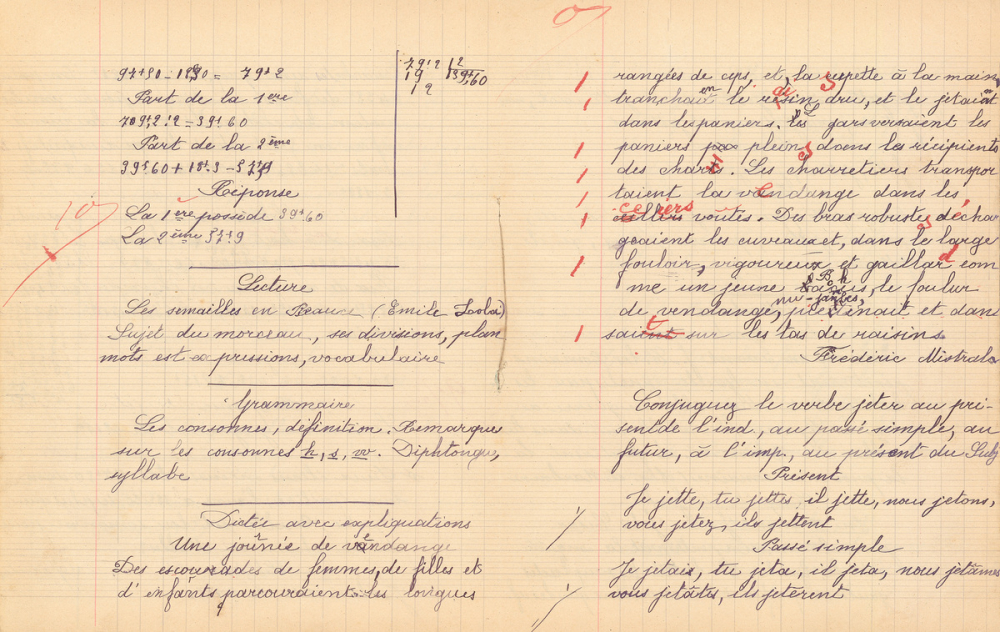 97f90 - 18f30 = 79f2
Part de la 1ere
79f,2 : 2 = 39f60
Part de la 2ème
39f60 + 18f3 = 57f9
Réponse
La 1ere possède 39f60
La 2ème 57f9
79f2 12
19 39f,60
12
10
Lecture
Les semailles en Beauce (Emile Zola)
Sujet du morceau, ses divisions, plan
mots est expressions, vocabulaire
Grammaire
Les consonnes, définition. Remarque
sur les consonnes h, s, w. Diphtongue,
syllabe
Dictée avec expliquations
Une journée de vendange
Des escouades de femmes, de filles et
d'enfants parcouraient les longues
0
rangées de ceps, et, la serpette à la main,
tranchaient le raisin dru, et le jetaient
dans les paniers. Les gars versaient les
paniers pleins dans les récipients
des chars. Les charretiers transpor
taient la vendange dans les
celliers voûtés. Des bras robustes déchar
geaient les cuveaux et, dans le large
fouloir, vigoureux et gaillard com
me un jeune Bohis, le fouleur
de vendange, nu-jambes, piétinait et dan
sait sur les tas de raisins.
Frédéric Mistral
Conjuguez le verbe jeter au pré-
sent de l'ind., au passé simple, au
futur, à l'imp., au présent du Subj
Présent
Je jette, tu jettes il jette, nous jetons,
vous jetez, ils jettent
Passé simple
Je jetais, tu jeta, il jeta, nous jetâmes
vous jetâtes, ils jetèrent